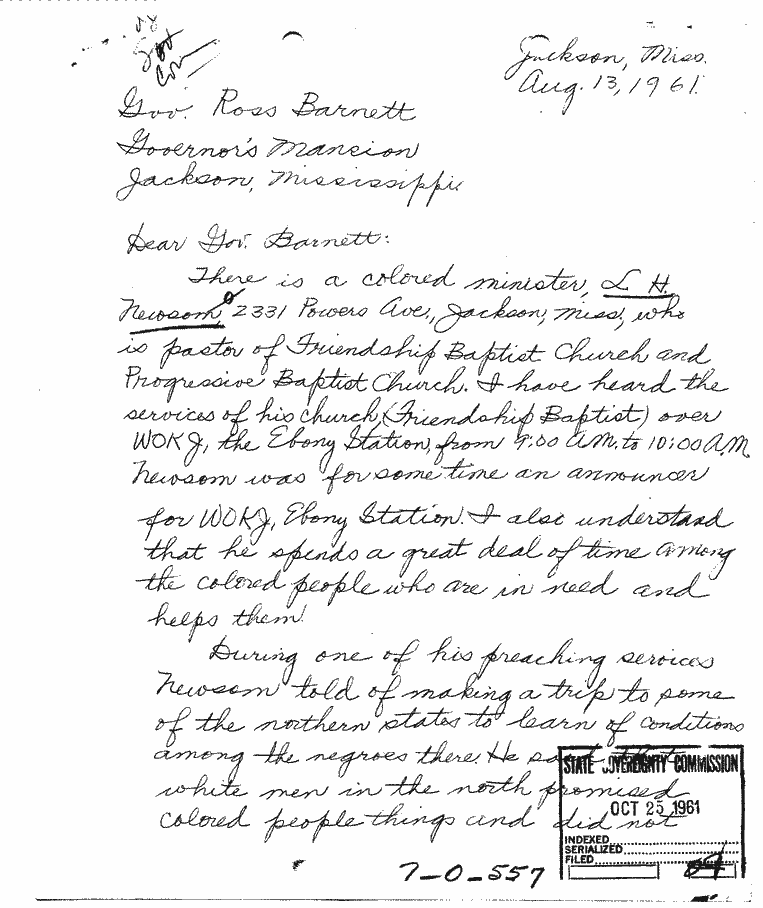 Jackson, Miss.
Aug. 13, 1961.
Gov. Ross Barnett
Governor's Mansion
Jackson, Mississippi
Dear Gov. Barnett:
There is a colored minister, L H.
Newsom, 2331 Powers Ave., Jackson, Miss, who
is pastor of Friendship Baptist Church and
Progressive Baptist Church. I have heard the
services of his church (Friendship Baptist) over
WOKJ, the Ebony Station, from 9:00 A.M. to 10:00 A.M.
Newsom was for some time an announcer
for WOKJ, Ebony Station. I also understand
that he spends a great deal of time among
the colored people who are in need and
helps them.
During one of his preaching services
Newsom told of making a trip to some
of the northern states to learn of conditions
among the negroes there. He said that
white men in the north promised
colored people things and did not
STATE SOVEREIGNTY COMMISSION
OCT 25 1961
INDEXED
SERIALIZED
FILED
7-0-557